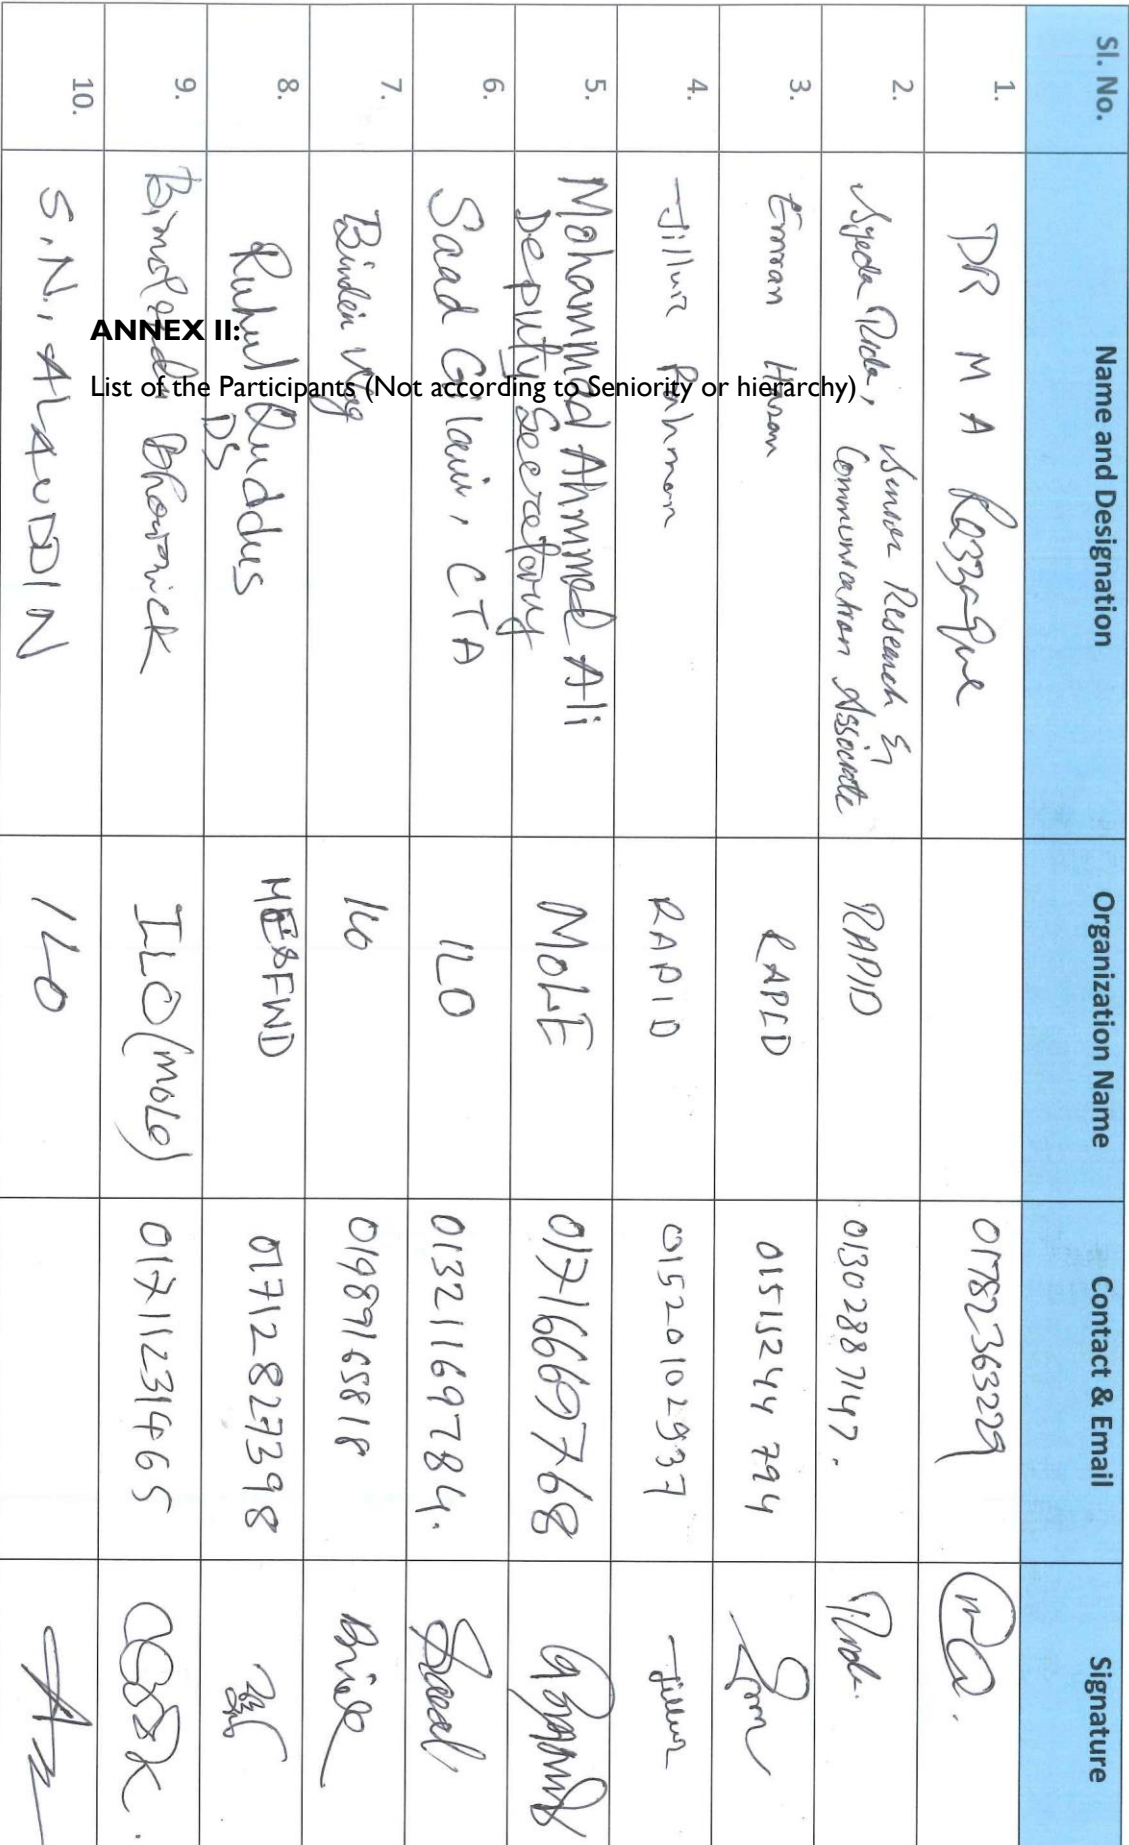 ANNEX II:
List of the Participants (Not according to Seniority or hierarchy)
Sl. No. Name and Designation Organization Name Contact & Email Signature
1. DR M A Razzaque 01782363229
2. Syeda Rida, Senior Research &
Communication Associate RAPID 01302887147.
3. Emran Hasan RAPID 01515244 794
4. Jillur Rahman RAPID 01520102937 Jillur
5. Mohammad Ahmmed Ali
Deputy Secretary MoLE 01716669768
6. Saad Gilani, CTA ILO 01321169784. Saad
7. 01989165818
8. Ruhul Quddus
DS 01712827398
9. Bhowmick ILO (MoLE) 01711231465
10. S.N. ALAUDDIN ILO